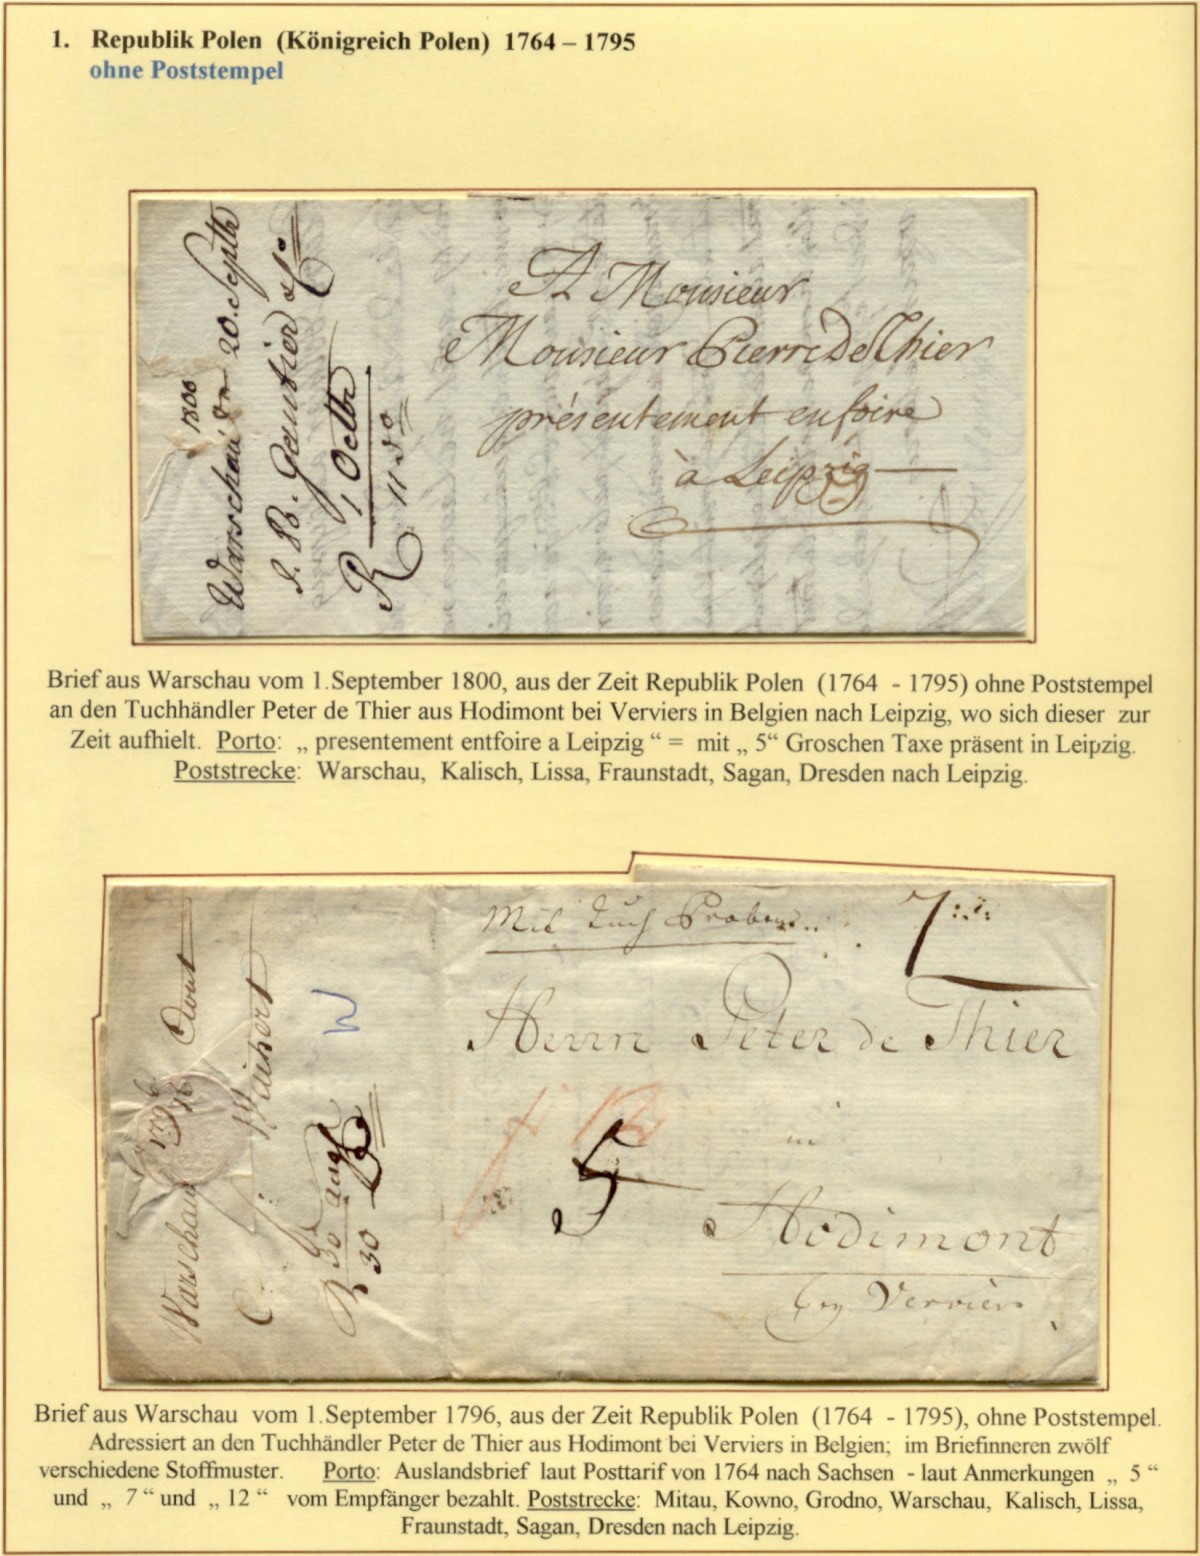 1. Republik Polen (Königreich Polen) 1764 – 1795
ohne Poststempel
1800
Warschau 20. Septb
J. B. Gautier
R 1 Octbr
11 do
A Monsieur
Monsieur Pierre De Thier
présentement en foire
à Leipzig
Brief aus Warschau vom 1.September 1800, aus der Zeit Republik Polen (1764 - 1795) ohne Poststempel
an den Tuchhändler Peter de Thier aus Hodimont bei Verviers in Belgien nach Leipzig, wo sich dieser zur
Zeit aufhielt. Porto: „ presentement entfoire a Leipzig “ = mit „ 5“ Groschen Taxe präsent in Leipzig.
Poststrecke: Warschau, Kalisch, Lissa, Fraunstadt, Sagan, Dresden nach Leipzig.
1796
Warschau 16 Aout
R 30 aug
30
W
Mit Tuch Proben
7
Herrn Peter de Thier
5
in
Hodimont
bey Verviers
Brief aus Warschau vom 1.September 1796, aus der Zeit Republik Polen (1764 - 1795), ohne Poststempel.
Adressiert an den Tuchhändler Peter de Thier aus Hodimont bei Verviers in Belgien; im Briefinneren zwölf
verschiedene Stoffmuster. Porto: Auslandsbrief laut Posttarif von 1764 nach Sachsen - laut Anmerkungen „ 5 “
und „ 7 “ und „ 12 “ vom Empfänger bezahlt. Poststrecke: Mitau, Kowno, Grodno, Warschau, Kalisch, Lissa,
Fraunstadt, Sagan, Dresden nach Leipzig.